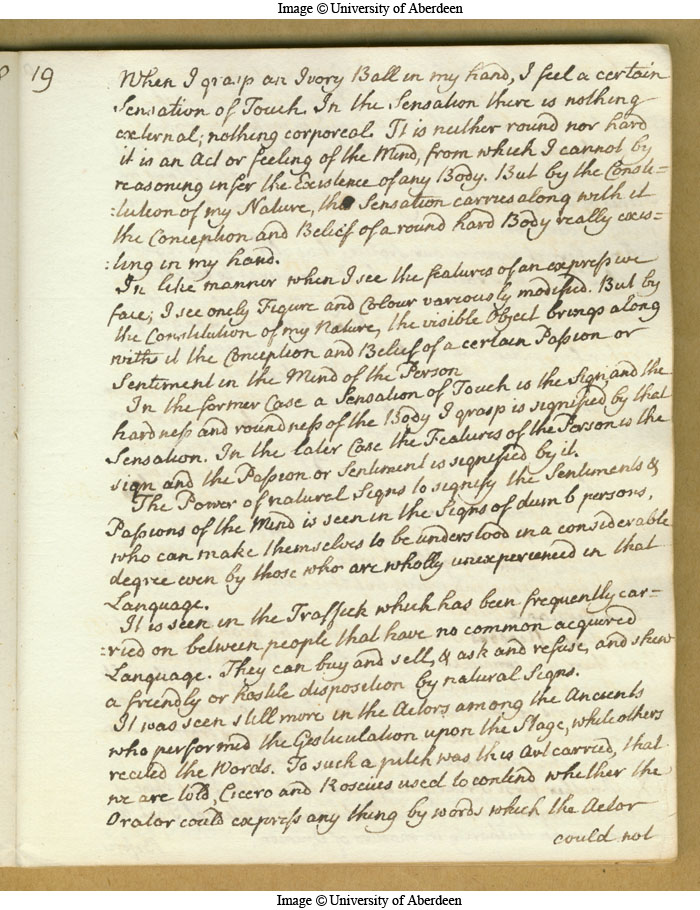 Image © University of Aberdeen
19
When I grasp an Ivory Ball in my hand, I feel a certain
Sensation of Touch. In the Sensation there is nothing
external; nothing corporeal. It is neither round nor hard
it is an Act or feeling of the Mind, from which I cannot by
reasoning infer the Existence of any Body. But by the Consti=
:tution of my Nature, the Sensation carries along with it
the Conception and Belief of a round hard Body really exis=
:ting in my hand.
In like manner when I see the features of an expressive
face; I see onely Figure and Colour variously modified. But by
the Constitution of my Nature, the visible Object brings along
with it the Conception and Belief of a certain Passion or
Sentiment in the Mind of the Person
In the former Case a Sensation of Touch is the Sign, and the
hardness and roundness of the Body I grasp is signified by that
Sensation. In the later Case the Features of the Person is the
sign and the Passion or Sentiment is signified by it.
The Power of natural Signs to signify the Sentiments &
Passions of the Mind is seen in the Signs of dumb persons,
who can make themselves to be understood in a considerable
degree even by those who are wholly unexperienced in that
Language.
It is seen in the Traffick which has been frequently car=
:ried on between people that have no common acquired
Language. They can buy and sell, & ask and refuse, and shew
a friendly or hostile disposition by natural Signs.
It was seen still more in the Actors among the Ancients
who performed the Gesticulation upon the Stage, while others
recited the Words. To such a pitch was this Art carried, that
we are told, Cicero and Roscius used to contend whether the
Orator could express any thing by words which the Actor
could not
Image © University of Aberdeen